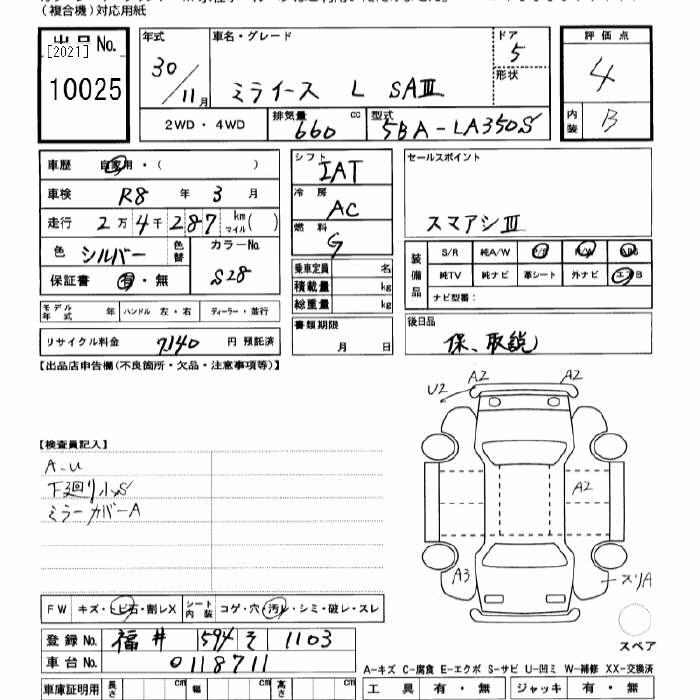 (複合機)対応用紙
出品No.
[2021]
10025
年式
30/11月
車名・グレード
ミライース L SAⅢ
ドア
5
形状
評価点
4
内装
B
2WD・4WD
排気量
660 cc
型式
5BA-LA350S
車歴 自家用・( )
車検 R8 年 3 月
走行 2万4千287 km マイル( )
色 シルバー 色替
カラーNo.
S28
保証書 有・無
シフト
IAT
冷房
AC
燃料
G
乗車定員 名
積載量 kg
総重量 kg
セールスポイント
スマアシⅢ
装備品
S/R 純A/W P/S P/W ABS
純TV 純ナビ 革シート 外ナビ エアB
ナビ型番:
モデル年式 年 ハンドル 左・右 ディーラー・並行
リサイクル料金 7140 円 預託済
書類期限
月 日
後日品
保、取説
【出品店申告欄(不良箇所・欠品・注意事項等)】
U2 A2 A2
【検査員記入】
A-U
下廻り小S
ミラーカバーA
A2
A3
スリA
スペア
FW キズ・トビ石・割レX シート内装 コゲ・穴・汚レ・シミ・破レ・スレ
登録No. 福井 594 そ 1103
車台No. 0118711
A-キズ C-腐食 E-エクボ S-サビ U-凹ミ W-補修 XX-交換済
車庫証明用 長さ cm 幅 cm 高さ cm
工具 有・無 ジャッキ 有・無